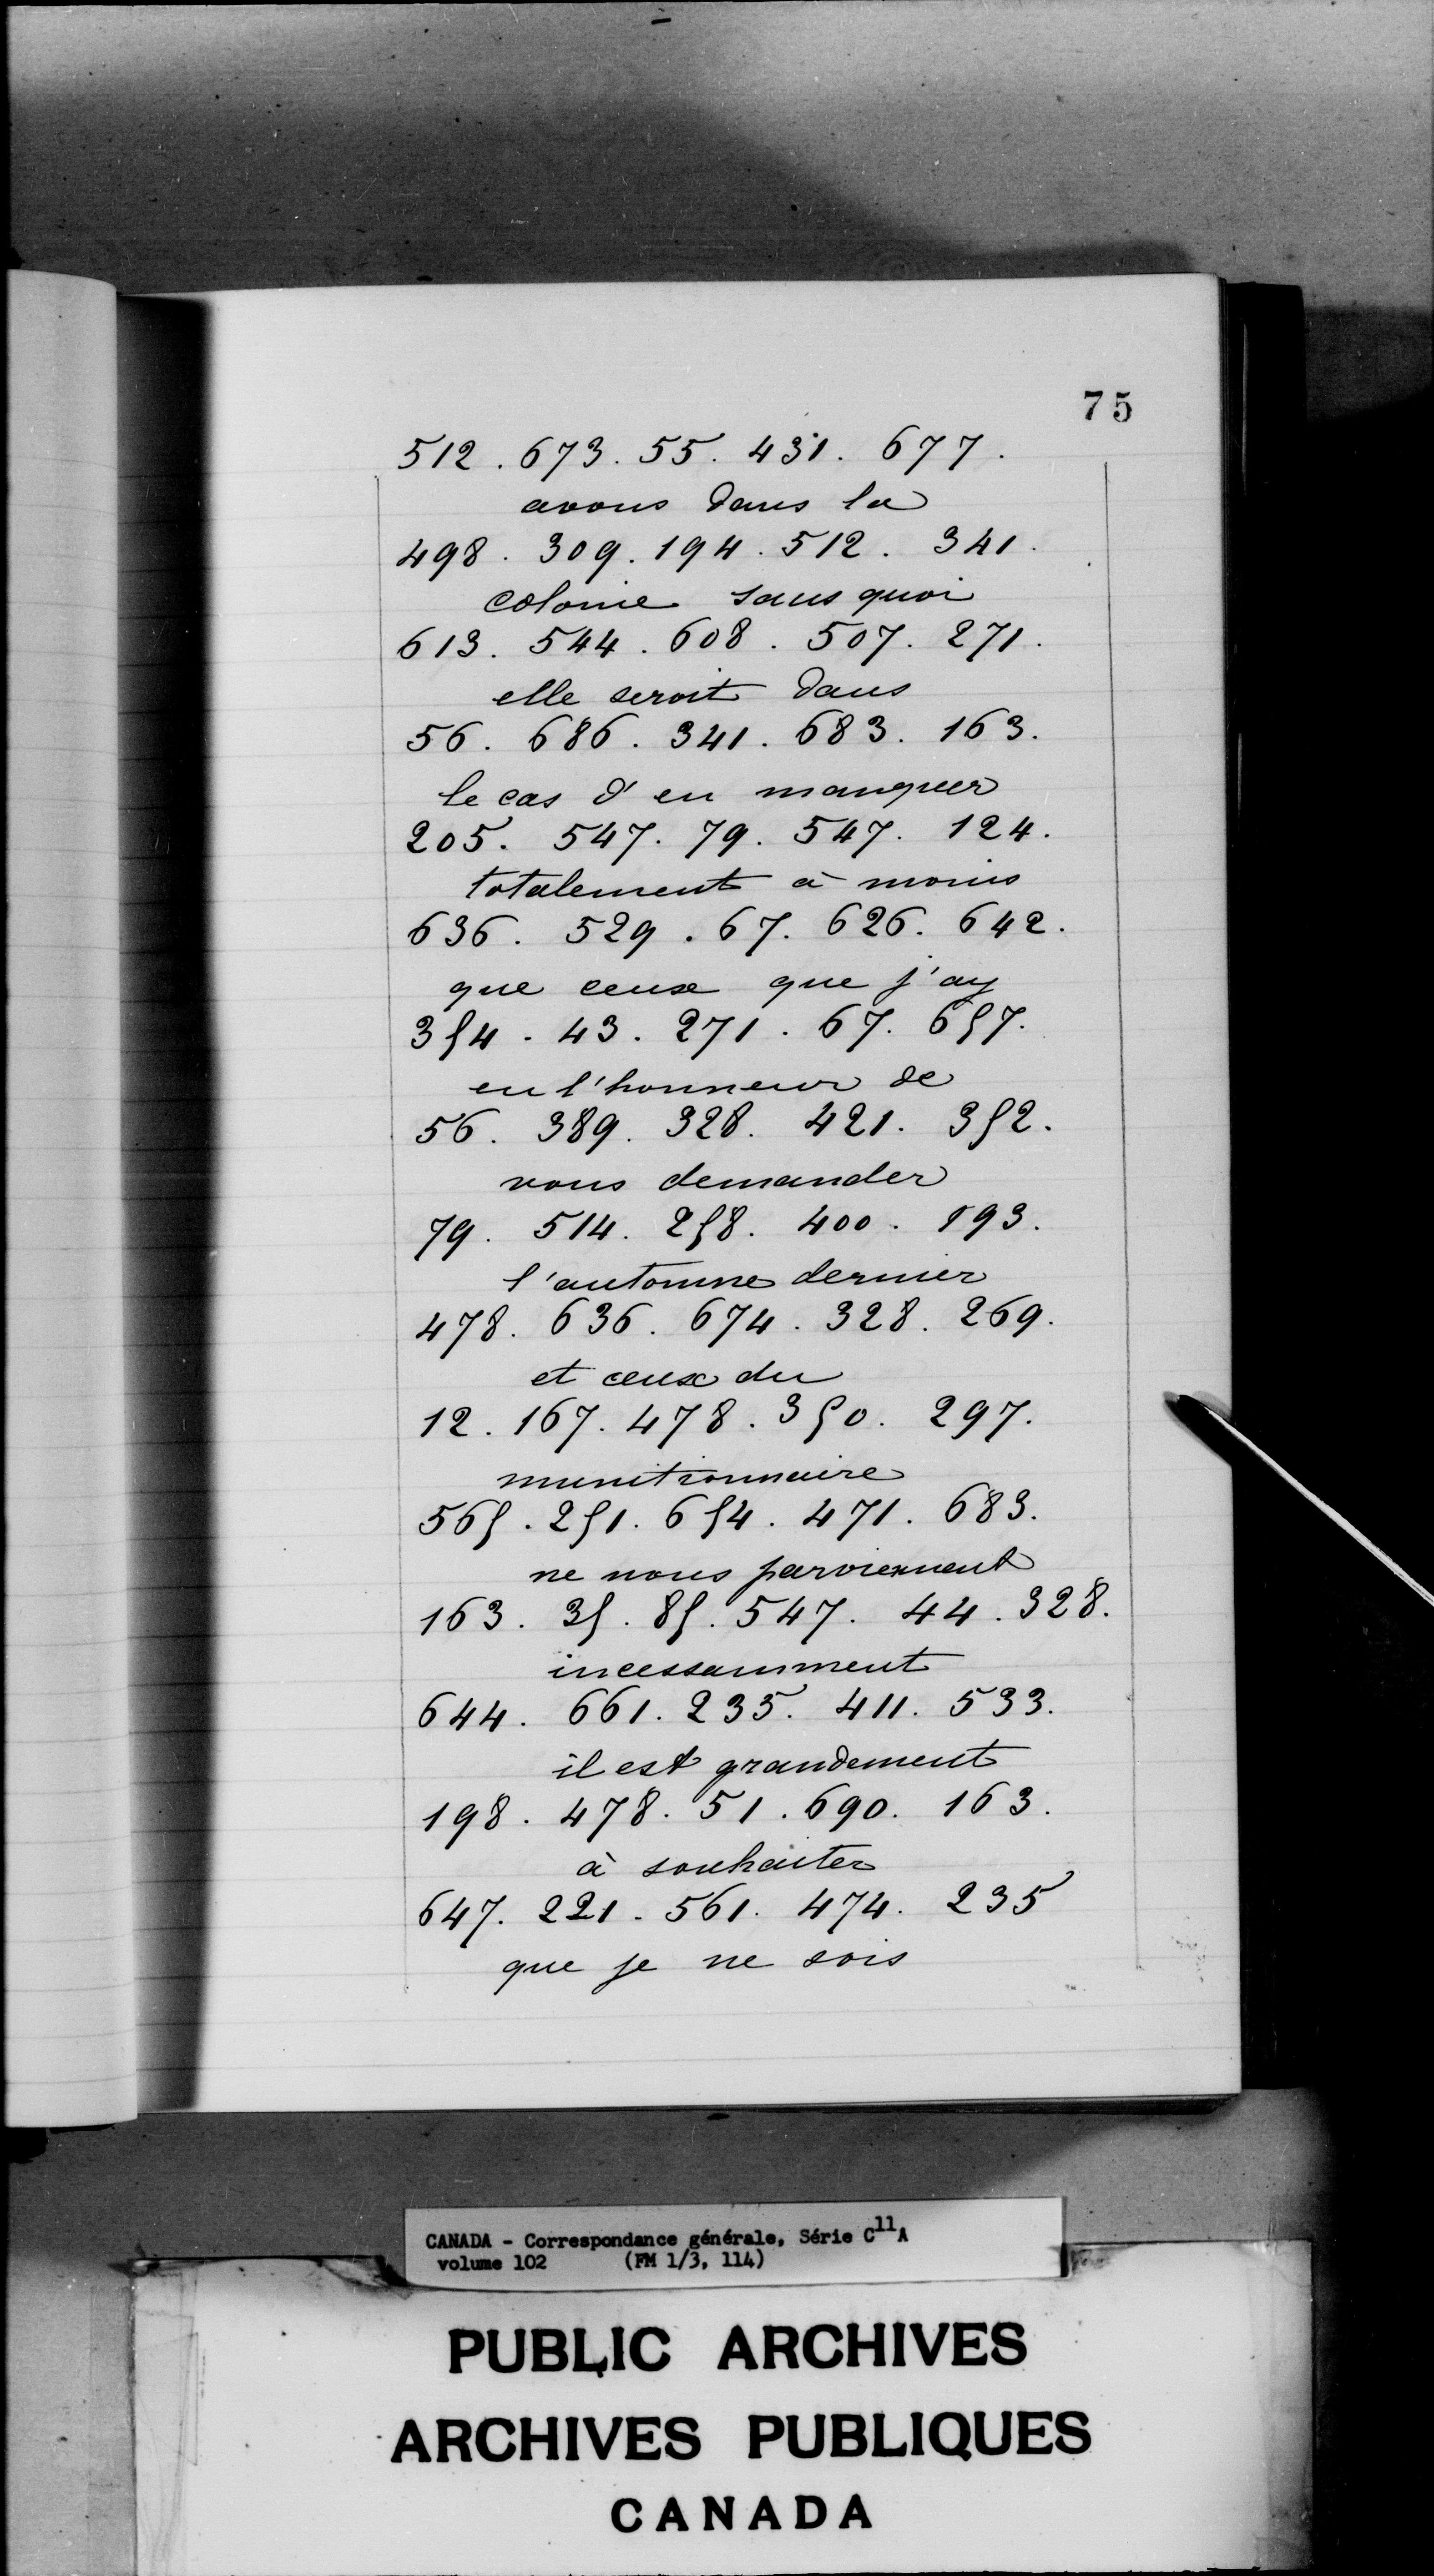 75
512. 673. 55. 431. 677.
avons dans la
498. 309. 194. 512. 341.
colonie sans quoi
613. 544. 608. 507. 271.
elle seroit dans
56. 686. 341. 683. 163.
le cas d'en manquer
205. 547. 79. 547. 124.
totalement à moins
636. 529. 67. 626. 642.
que ceux que j'ay
354. 43. 271. 67. 657.
eu l'honneur de
56. 389. 328. 421. 352.
vous demander
79. 514. 258. 400. 193.
l'automne dernier
478. 636. 674. 328. 269.
et ceux du
12. 167. 478. 350. 297.
munitionnaire
565. 251. 654. 471. 683.
ne nous parviennent
163. 35. 85. 547. 44. 328.
incessamment
644. 661. 235. 411. 533.
il est grandement
198. 478. 51. 690. 163.
à souhaiter
647. 221. 561. 474. 235
que je ne sois
CANADA - Correspondance générale, Série C11A
volume 102 (FM 1/3, 114)
PUBLIC ARCHIVES
ARCHIVES PUBLIQUES
CANADA